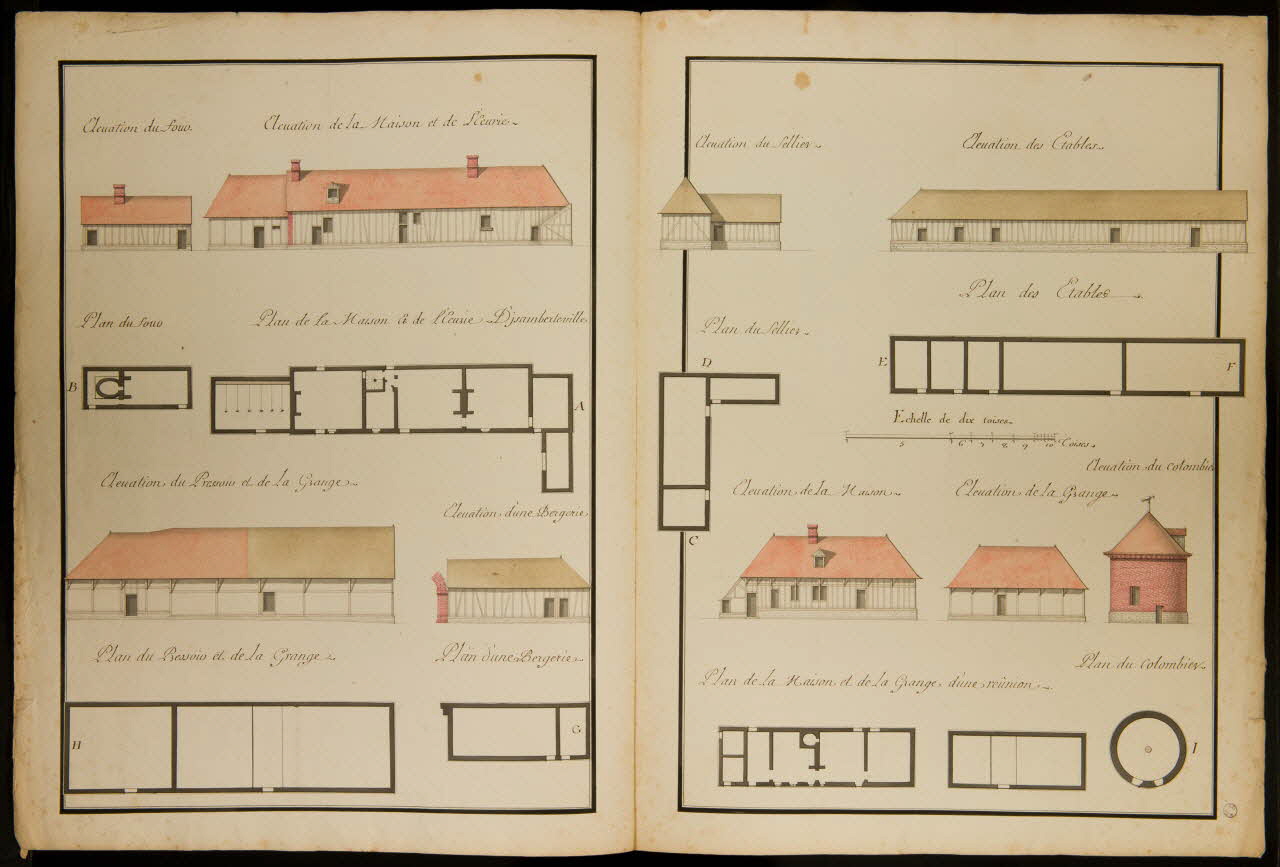 Elevation du four.
Elevation de la Maison et de l'Ecurie.
Plan du four
Plan de la Maison et de l'Ecurie D'jsamberteville
B
A
Elevation du Pressoir et de la Grange.
Elevation d'une Bergerie
Plan du Pressoir et de la Grange.
Plan d'une Bergerie.
H
G
Elevation du Sellier.
Elevation des Etables.
Plan des Etables.
Plan du Sellier.
D
E
F
Echelle de dix toises.
5 6 7 8 9 10 Toises.
C
Elevation du colombie
Elevation de la Maison.
Elevation de la Grange.
Plan du Colombier.
Plan de la Maison et de la Grange d'une reünion.
I